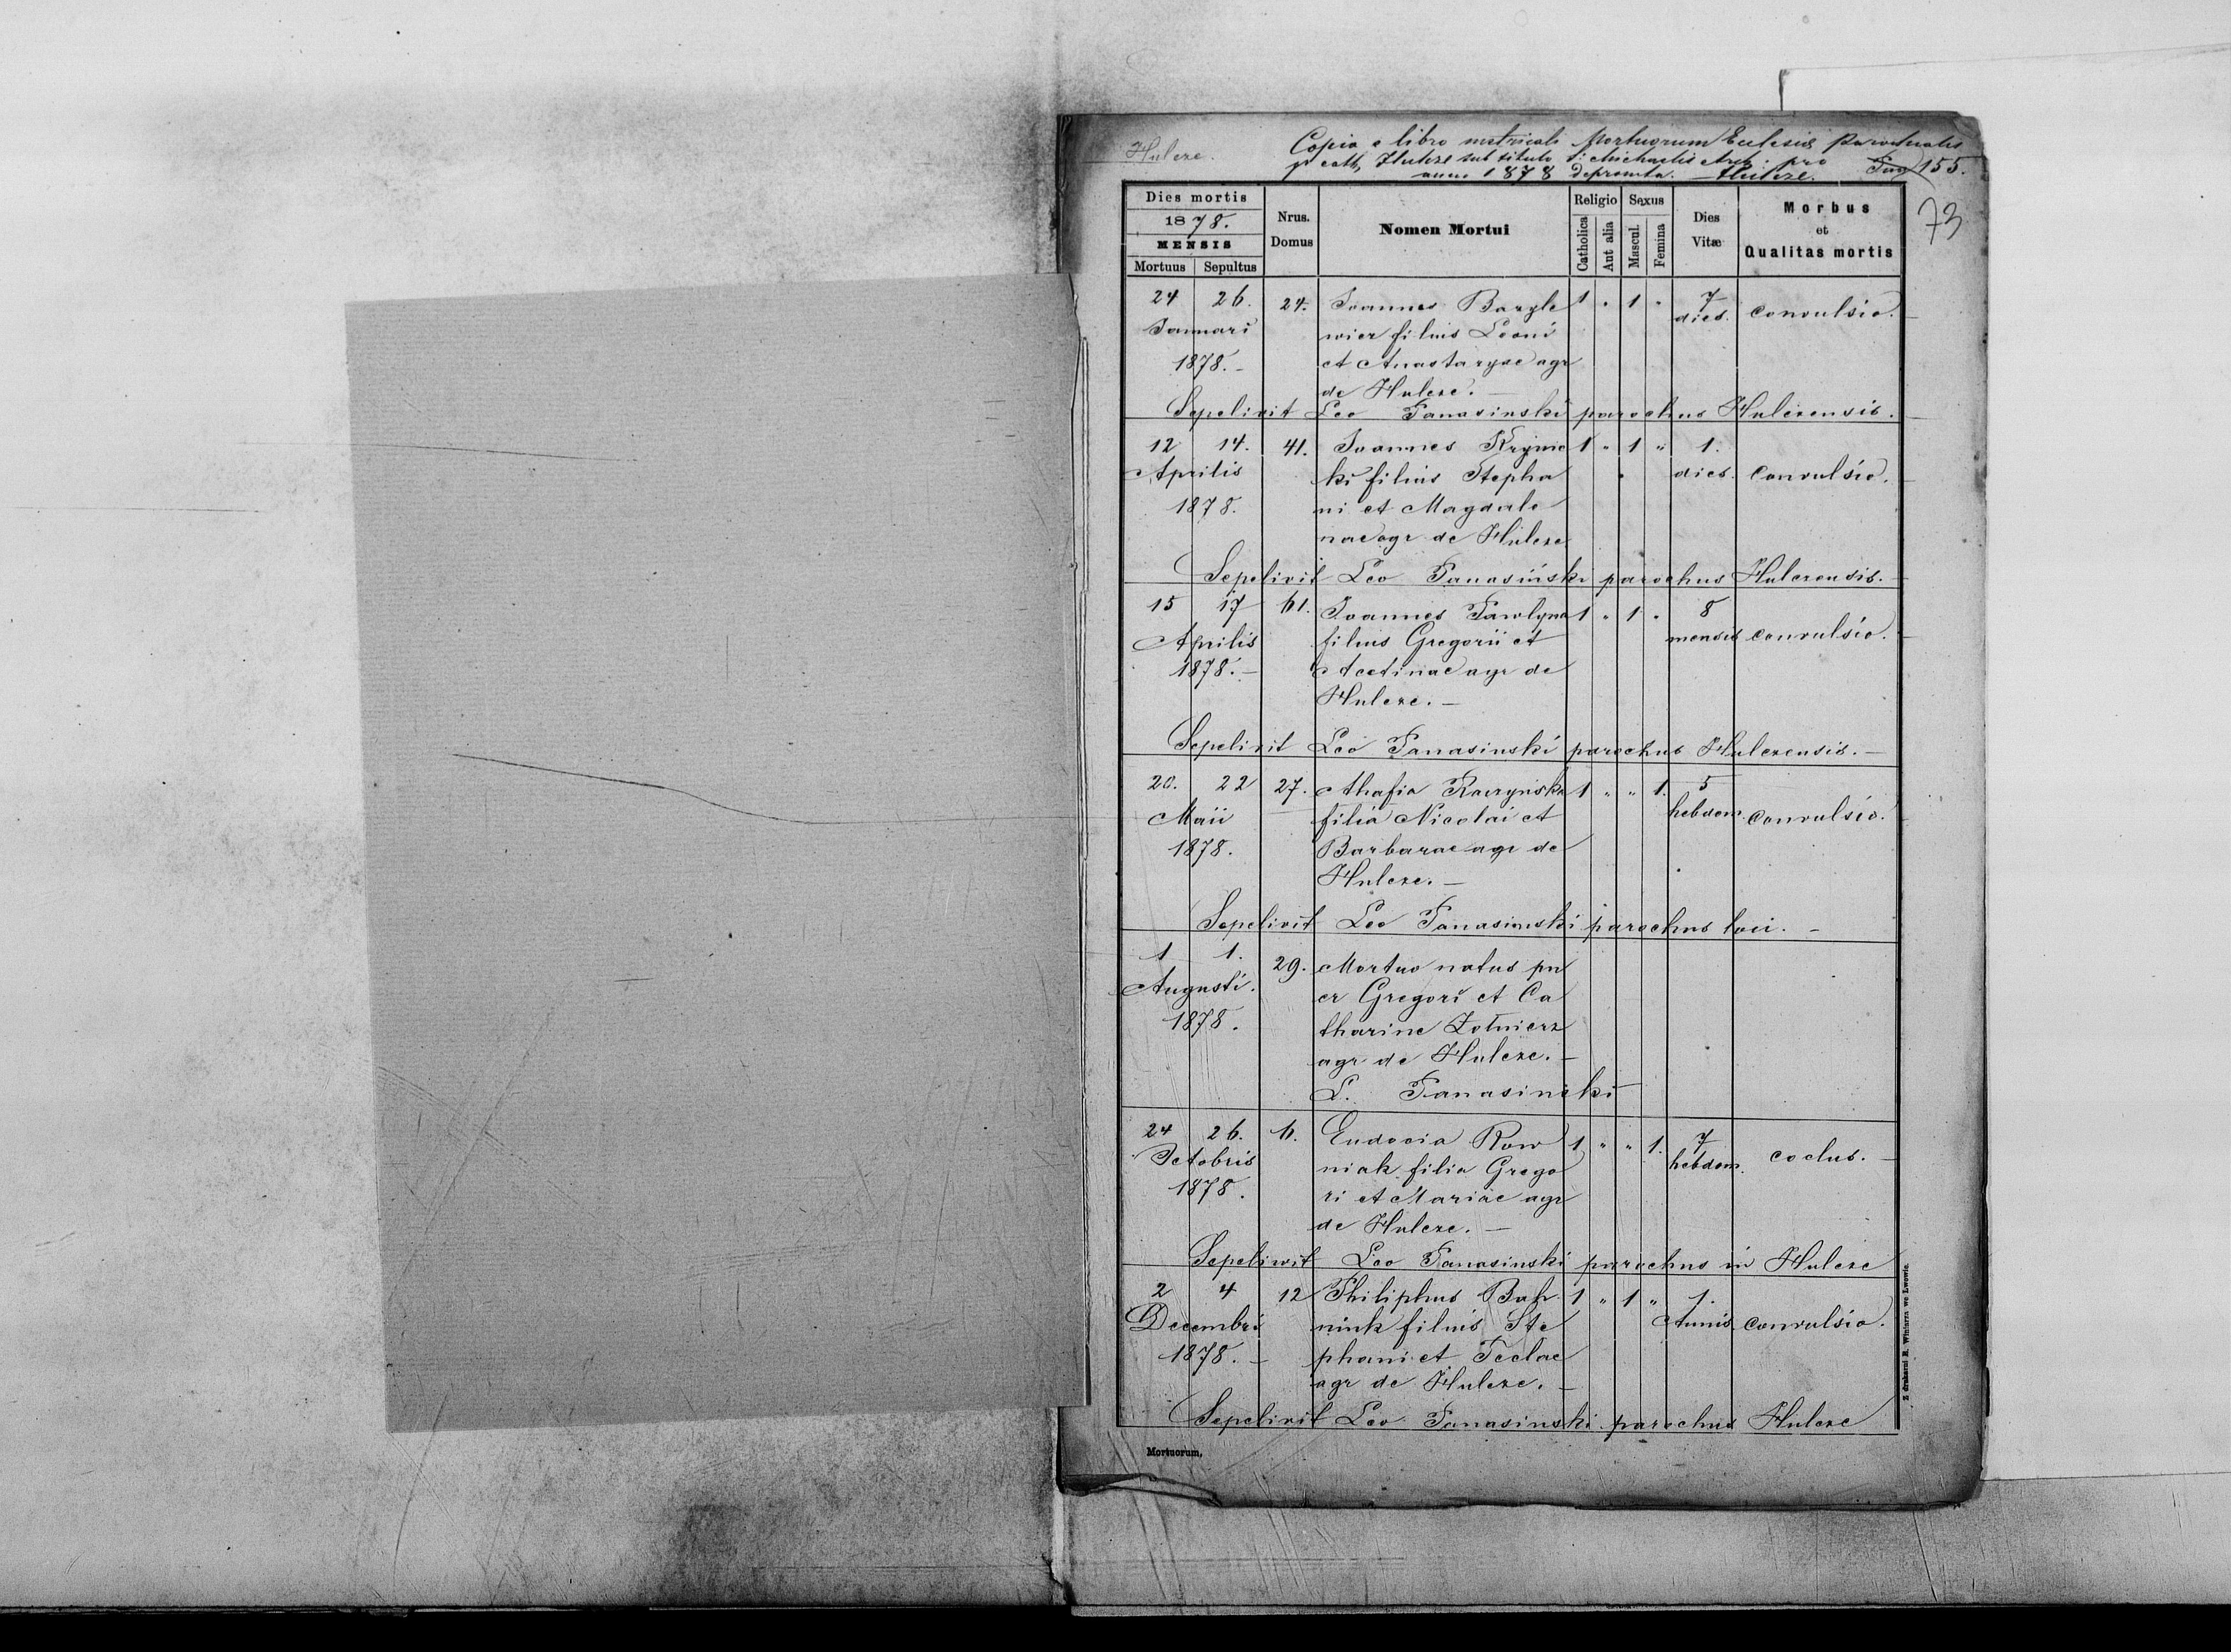 Hulcze.
Copia e libro metricali Mortuorum Eclesiæ Parochialis
gr cath, Hulcze sub titulo S: Michaelis Arch: pro
anno 1878 depromta. — Hulcze. Pag 155.
73
Dies mortis
1878.
MENSIS
Mortuus Sepultus
Nrus. Domus
Nomen Mortui
Religio
Catholica
Aut alia
Sexus
Mascul.
Femina
Dies Vitæ
Morbus
et
Qualitas mortis
24 26. 24. Joannes Bazyle 1 " 1 " 7 dies. convulsio.
Januari wicz filius Leoni
1878. — et Anastazyae agr
de Hulcze. —
Sepelivit Leo Tanasinski parochus Hulczensis.
12 14. 41. Joannes Krynic 1 " 1 " 1.
Aprilis ki filius Stepha dies. convulsio.
1878. ni et Magdale
nae agr de Hulcze
Sepelivit Leo Tanasiński parochus Hulczensis. —
15 17 61. Joannes Pawlyna 1 " 1 " 8
Aprilis filius Gregorii et mensis convulsio.
1878. — agr de
Hulcze. —
Sepelivit Leo Tanasinski parochus Hulczensis. —
20. 22 27. Ahafia Raczyńska 1 " " 1. 5
Maii filia Nicolai et hebdom. convulsio.
1878. Barbarae agr de
Hulcze. —
Sepelivit Leo Tanasinski parochus loci. —
1 1. 29. Mortuo natus pu
Augusti. er Gregori et Ca
1878. tharine Żołnierz
agr de Hulcze. —
L. Tanasinski
24 26. 6. Eudocia Row 1 " " 1. 7
Octobris niak filia Grego hebdom. coclus. —
1878. ri et Mariae agr
de Hulcze. —
Sepeliwit Leo Tanasinski parochus in Hulcze
2 4 12 Philiphus Bah 1 " 1 " 1.
Decembri niuk filius Ste Annis convulsio.
1878. — phani et Teclae
agr de Hulcze. —
Sepelivit Leo Tanasinski parochus Hulcze
Mortuorum,
Z drukarni E. Winiarza we Lwowie.